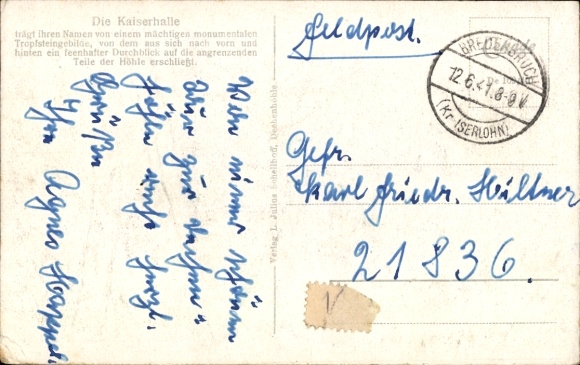 Die Kaiserhalle
trägt ihren Namen von einem mächtigen monumentalen
Tropfsteingebilde, von dem aus sich nach vorn und
hinten ein feenhafter Durchblick auf die angrenzenden
Teile der Höhle erschließt.
Von einer schönen
Tour zur
Höhle
Grüßen
Ihre Agnes Happel.
Verlag L. Julius Schellhoff, Dechenhöhle
Feldpost.
BREDENBRUCH
12.6.41.8-9V
(Kr. ISERLOHN)
Gefr.
Karl Friedr. Hiltner
21836.